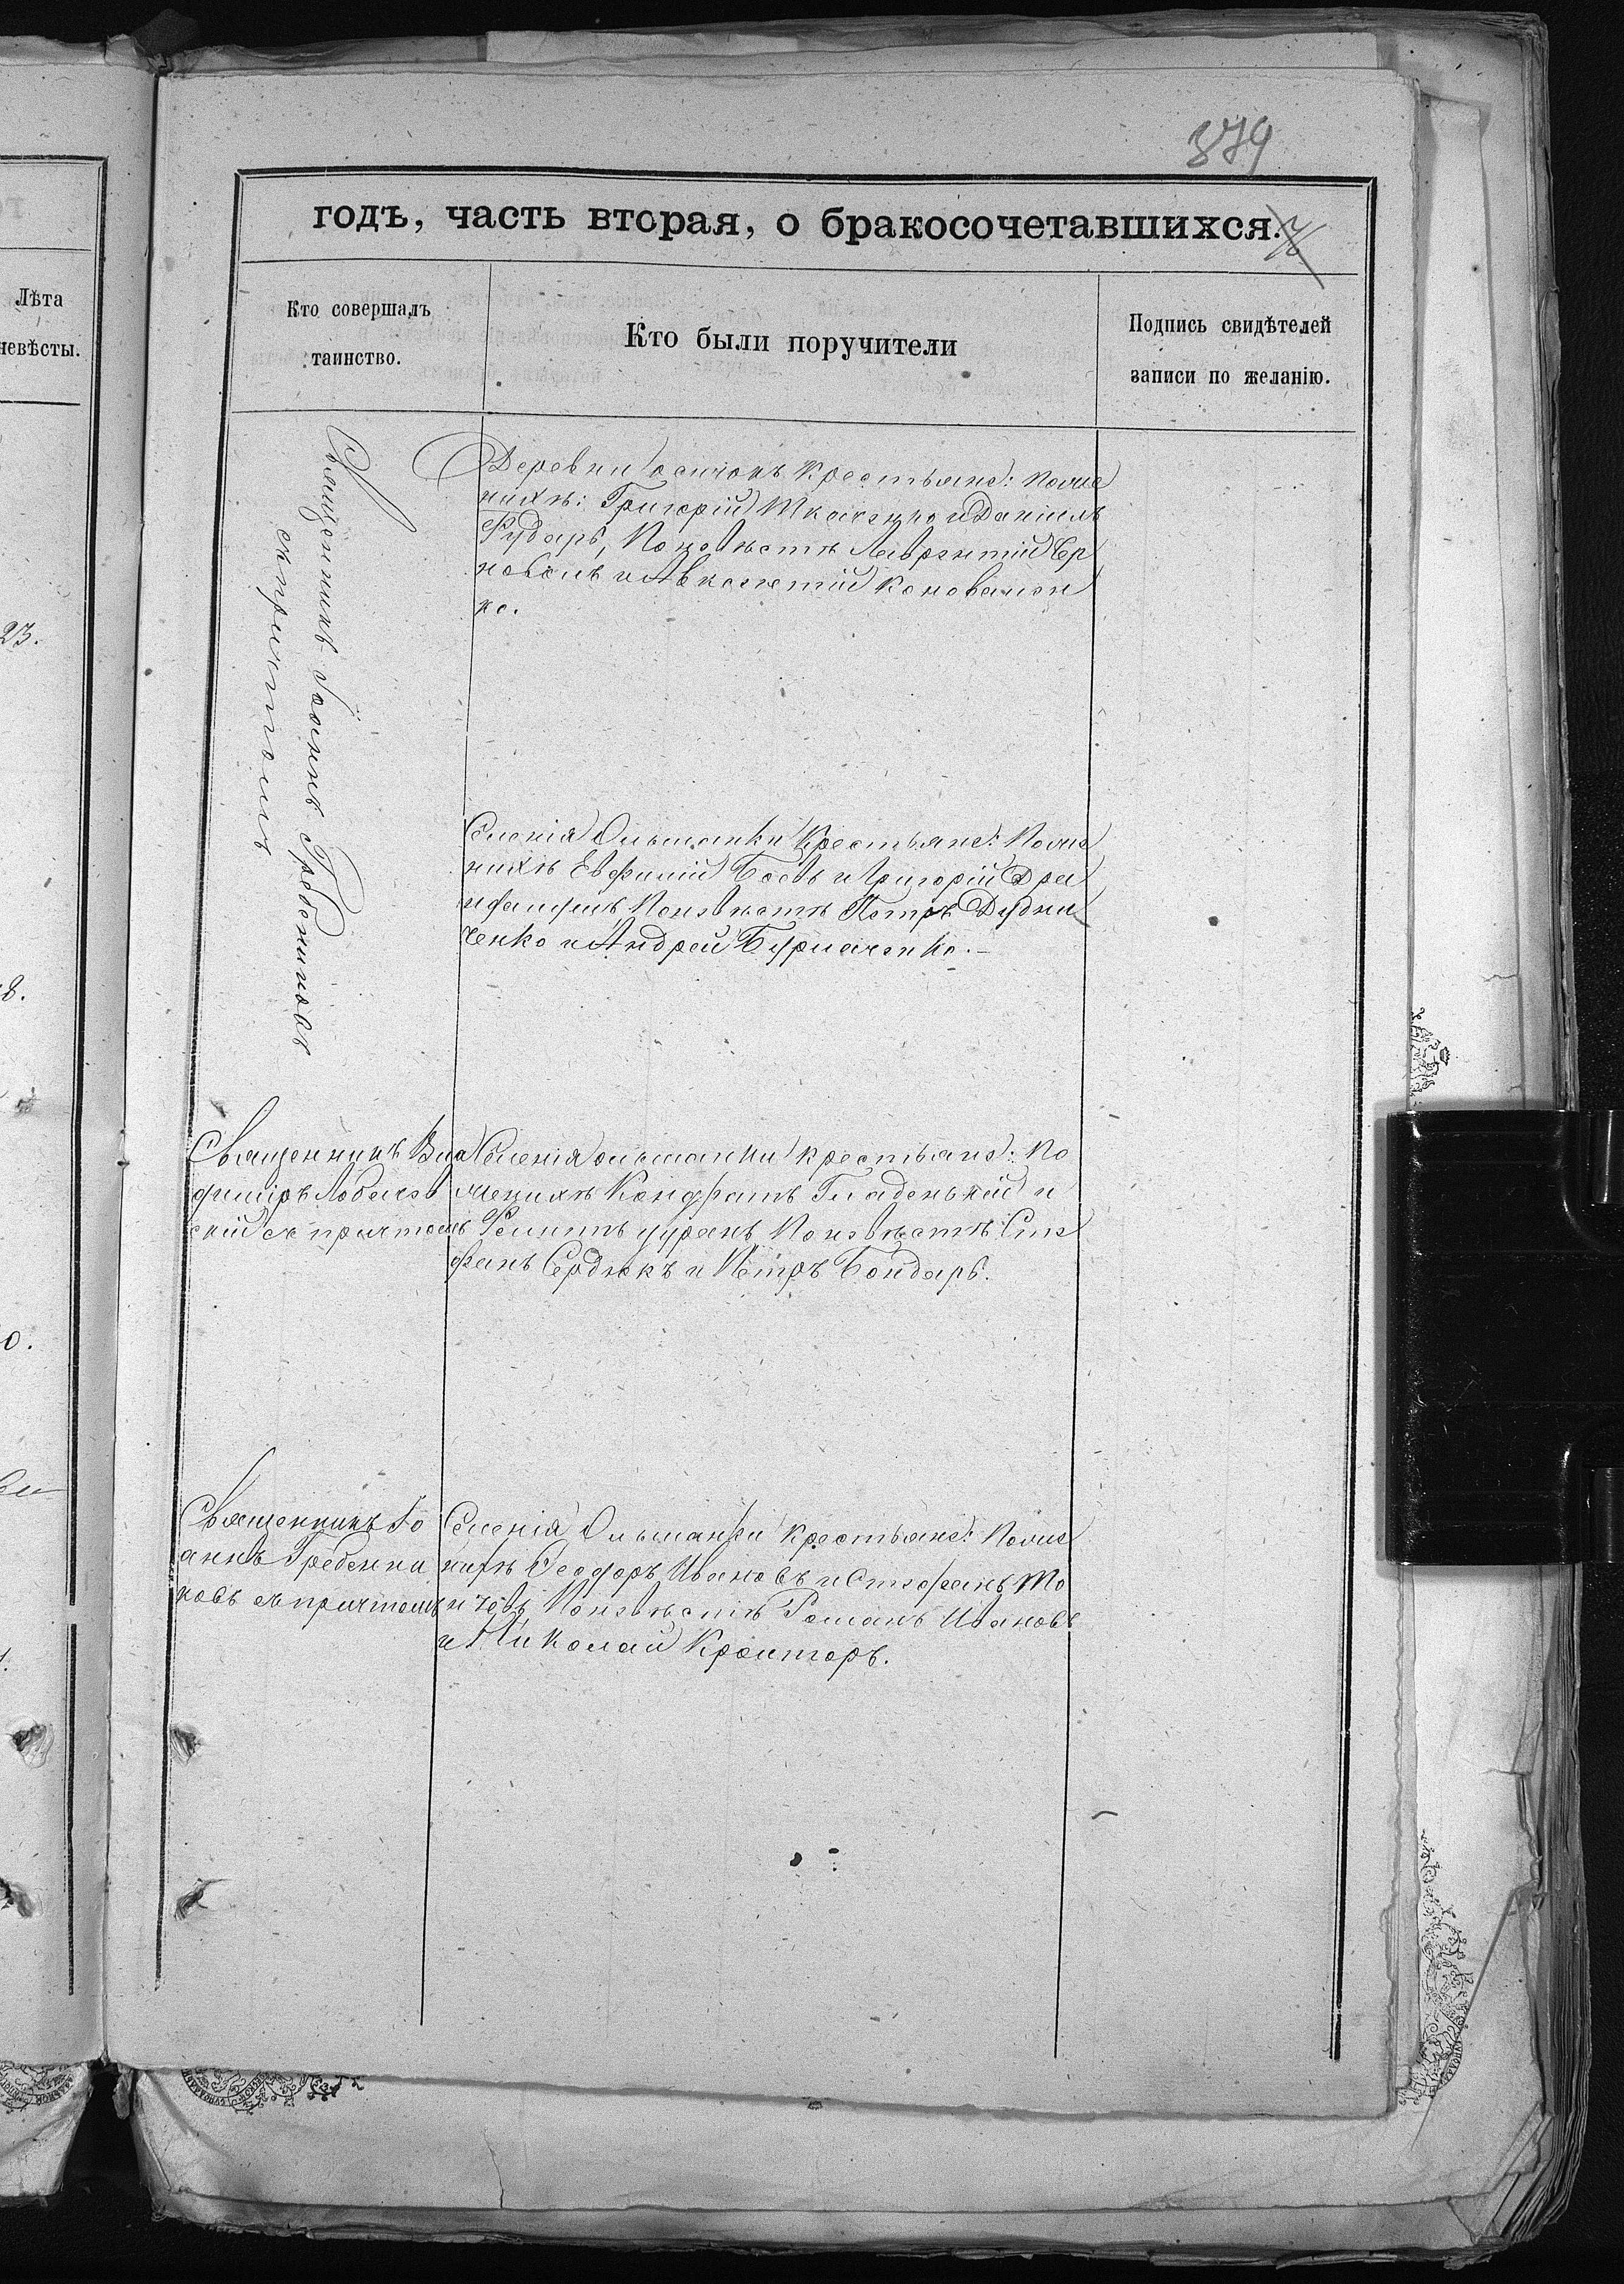 879
годъ, часть вторая, о бракосочетавшихся.
Лѣта
невѣсты.
Кто совершалъ
таинство.
Кто были поручители
Подпись свидѣтелей
записи по желанію.
23.
8.
0.
Священникъ Іоаннъ Гребенниковъ
съ причтомъ
Деревни крестьяне: По же
нихѣ: Григорій Ткаченко и Даніилъ
Рударь, По невѣстѣ Лаврентій Чер
новолъ и Авксентій Коновален
ко.
Селенія Ольшанки крестьяне: По же
нихѣ Евфимій Боевъ и Григорій
По невѣстѣ Петръ Дудни
ченко и Андрей Бурлаченко.-
Священникъ Вла
диміръ
скій съ причтомъ
Селенія Ольшанки крестьяне: По
женихѣ Кондратъ Гладенькій и
По невѣстѣ: Сте
фанъ Сердюкъ и Петръ Бондарь.
Священникъ Іо
аннъ Гребенни
ковъ съ причтомъ
Селенія Ольшанки крестьяне: По же
нихѣ Ѳеодоръ Ивановъ и Стефанъ
По невѣстѣ Романъ Ивановъ
и Николай Крамторъ.